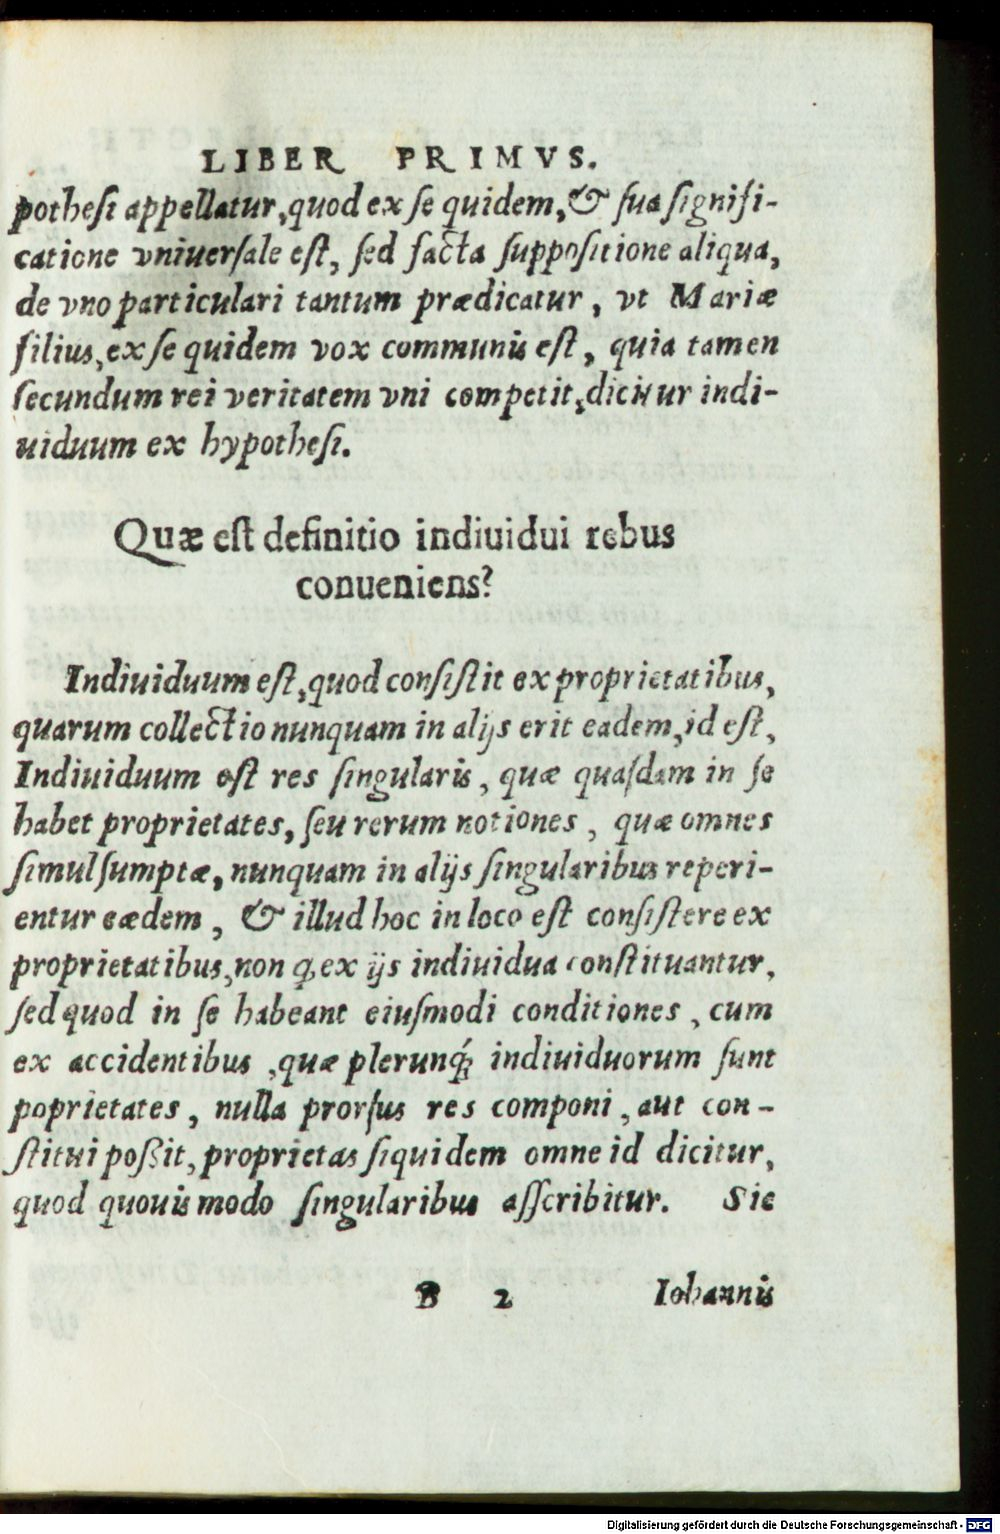 LIBER PRIMVS.
pothesi appellatur, quod ex se quidem, & sua signifi-
catione vniuersale est, sed facta suppositione aliqua,
de vno particulari tantum prædicatur, vt Mariæ
filius, ex se quidem vox communis est, quia tamen
secundum rei veritatem vni competit, dicitur indi-
uiduum ex hypothesi.
Quæ est definitio indiuidui rebus
conueniens?
Indiuiduum est, quod consistit ex proprietatibus,
quarum collectio nunquam in alijs erit eadem, id est,
Indiuiduum est res singularis, quæ quasdam in se
habet proprietates, seu rerum notiones, quæ omnes
simul sumptæ, nunquam in alijs singularibus reperi-
entur eædem, & illud hoc in loco est consistere ex
proprietatibus, non ꝙ ex ijs indiuidua constituantur,
sed quod in se habeant eiusmodi conditiones, cum
ex accidentibus, quæ plerunq́; indiuiduorum sunt
poprietates, nulla prorsus res componi, aut con-
stitui poßit, proprietas siquidem omne id dicitur,
quod quouis modo singularibus asscribitur. Sic
B 2 Iohannis
Digitalisierung gefördert durch die Deutsche Forschungsgemeinschaft - DFG